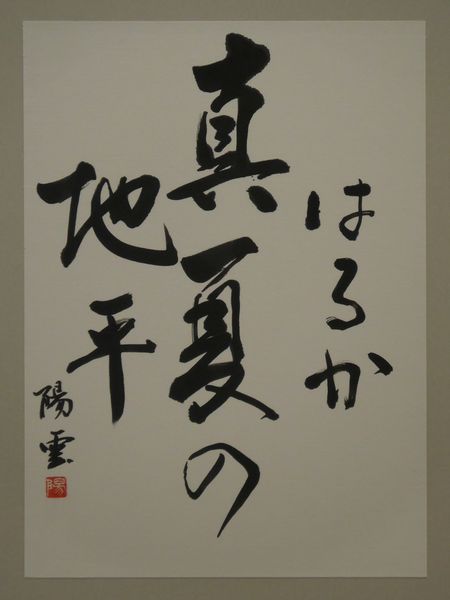 はるか
真夏の
地平
陽雲
陽